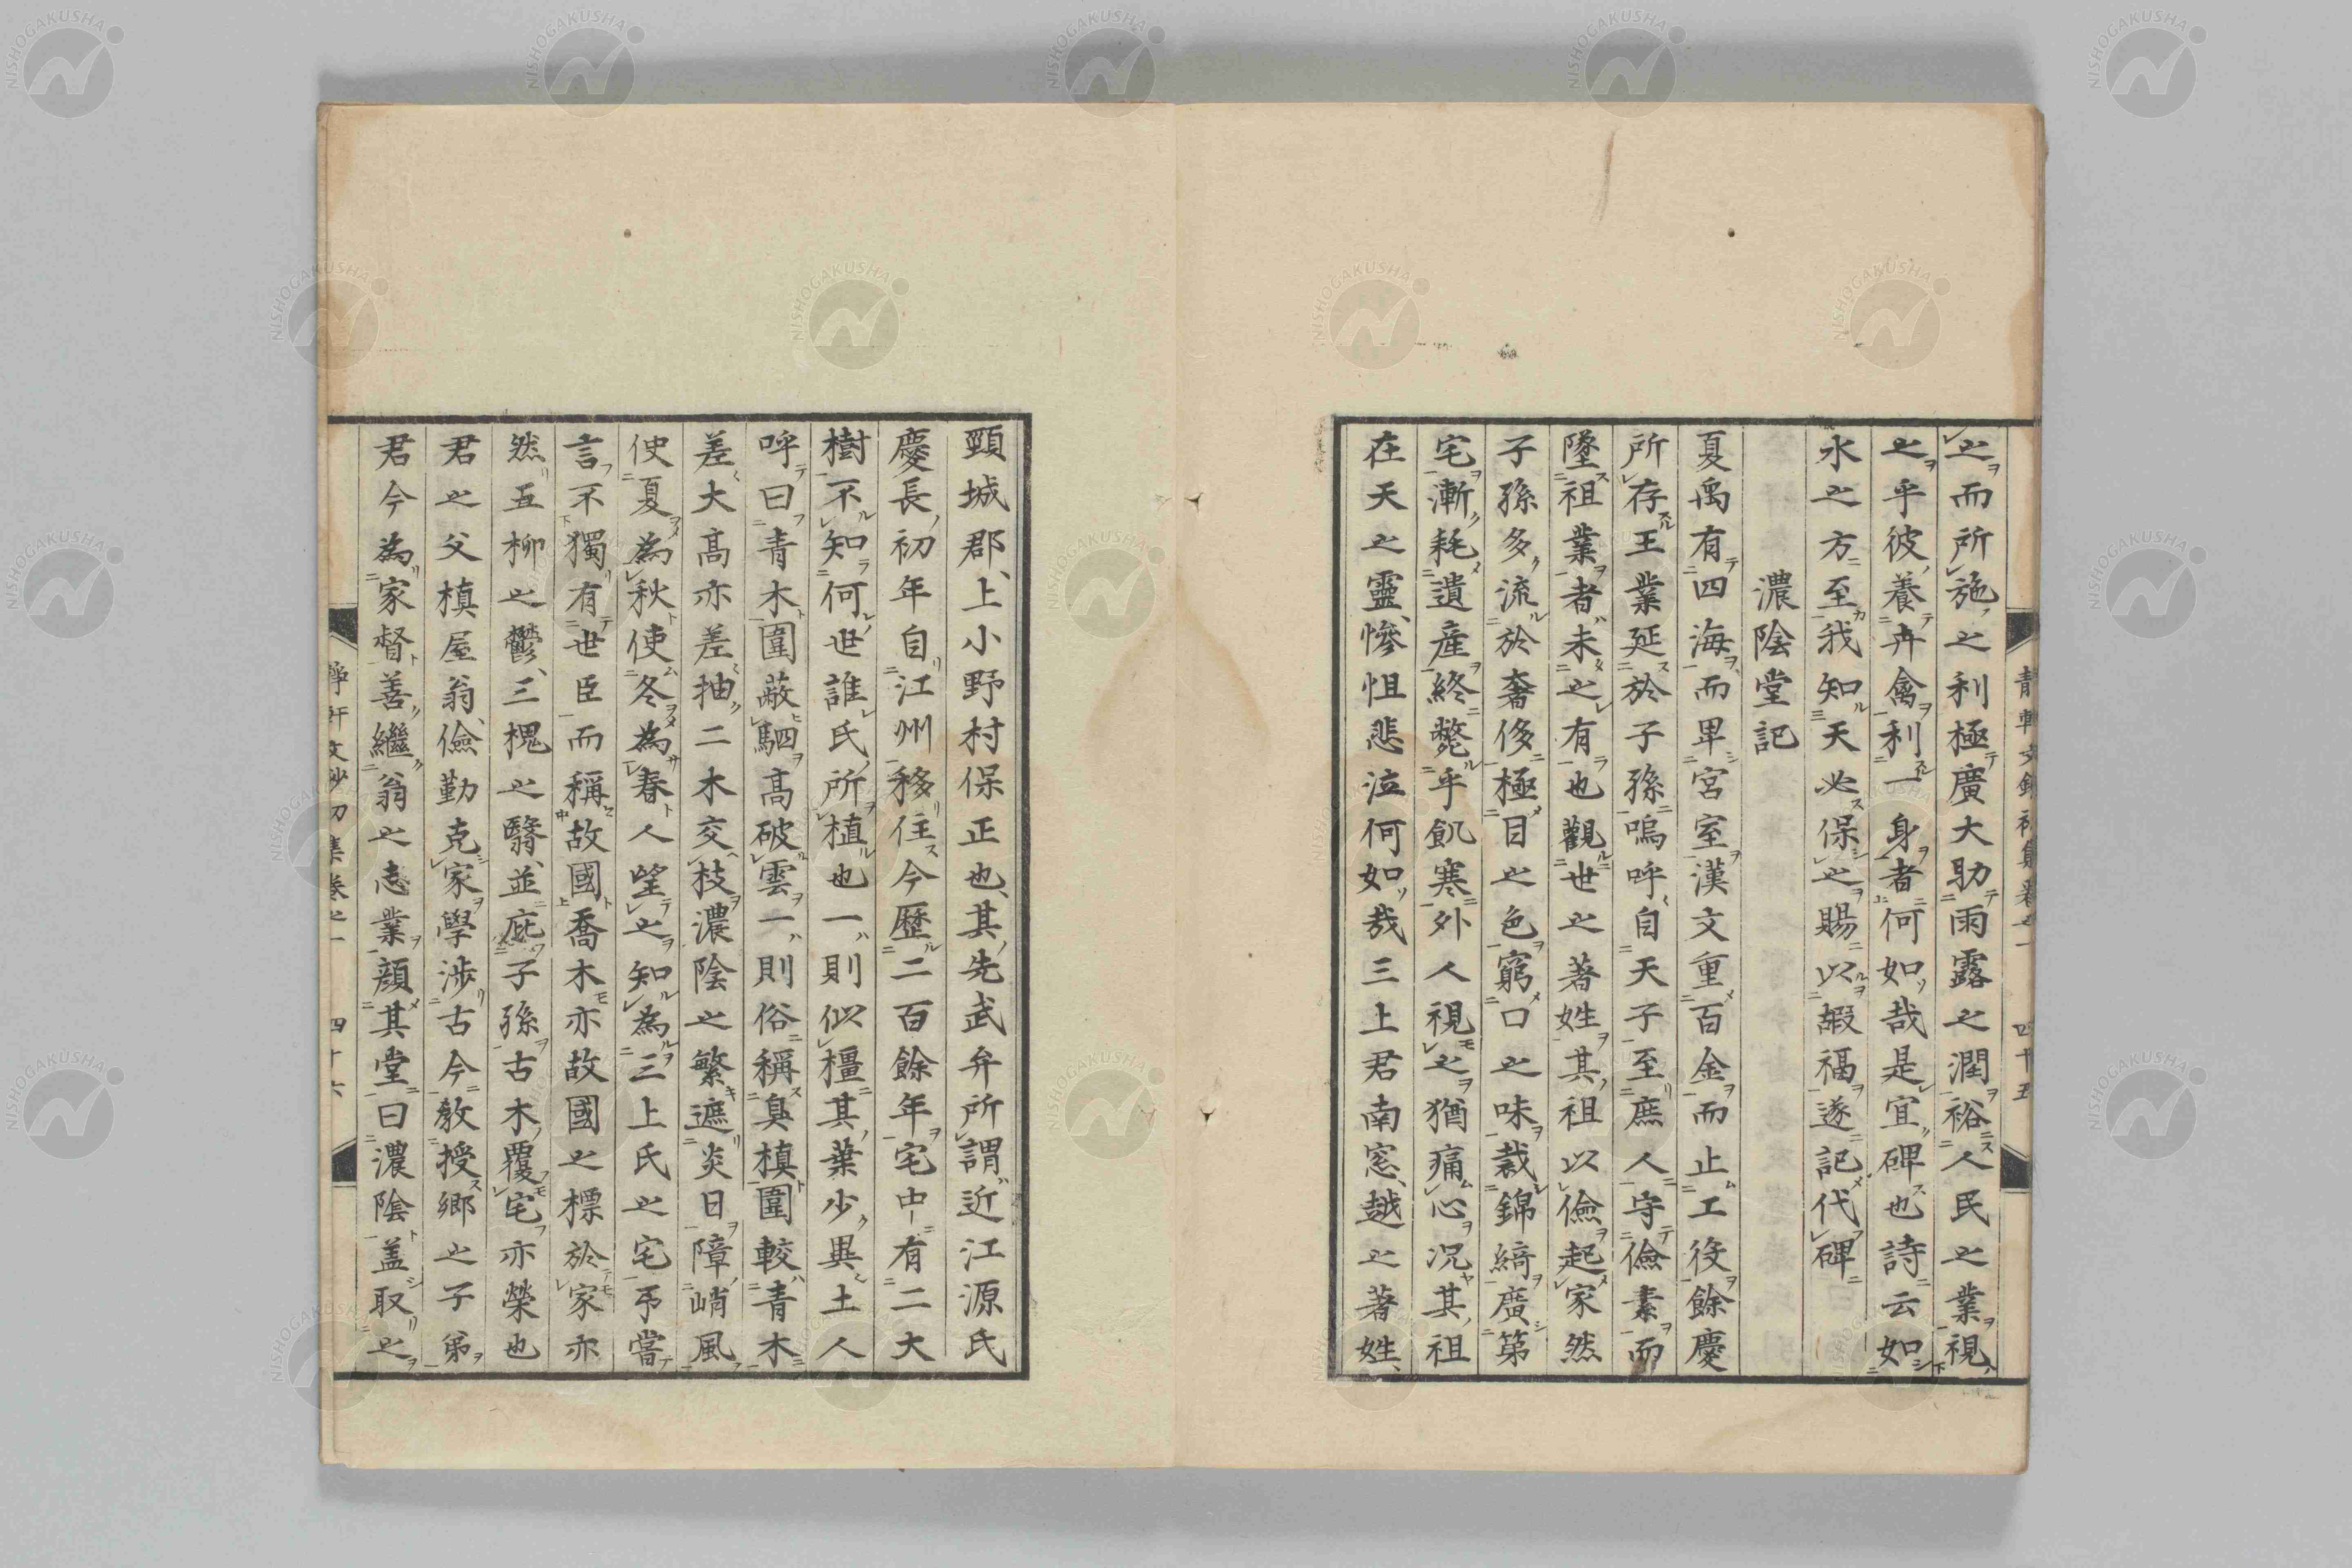 之而所施之利極廣大助雨露之潤裕人民之業視
之乎彼養卉禽利一身者何如哉是宜碑也詩云如
水之方至我知天必保之賜以嘏福遂記代碑
濃陰堂記
夏禹有四海而卑宮室漢文重百金而止工役餘慶
所存王業延於子孫嗚呼自天子至庶人守儉素而
墜祖業者未之有也觀世之著姓其祖以儉起家然
子孫多流於奢侈極目之色窮口之味裁錦綺廣第
宅漸耗遺產終斃乎飢寒外人視之猶痛心況其祖
在天之靈慘怛悲泣何如哉三上君南窓越之著姓
頸城郡上小野村保正也其先武弁所謂近江源氏
慶長初年自江州移住今歷二百餘年宅中有二大
樹不知何世誰氏所植也一則似橿其葉少異土人
呼曰青木圍蔽駟高破雲一則俗稱臭槙圍較青木
差大高亦差抽二木交枝濃陰之繁遮炎日障峭風
使夏為秋使冬為春人望之知為三上氏之宅弔當
言不獨有世臣而稱故國喬木亦故國之標於家亦
然五柳之鬱三槐之翳並庇子孫古木覆宅亦榮也
君之父槙屋翁儉勤克家學涉古今教授鄉之子弟
君今為家督善繼翁之志業顏其堂曰濃陰盖取之
四十五
四十六
NISHOGAKUSHA